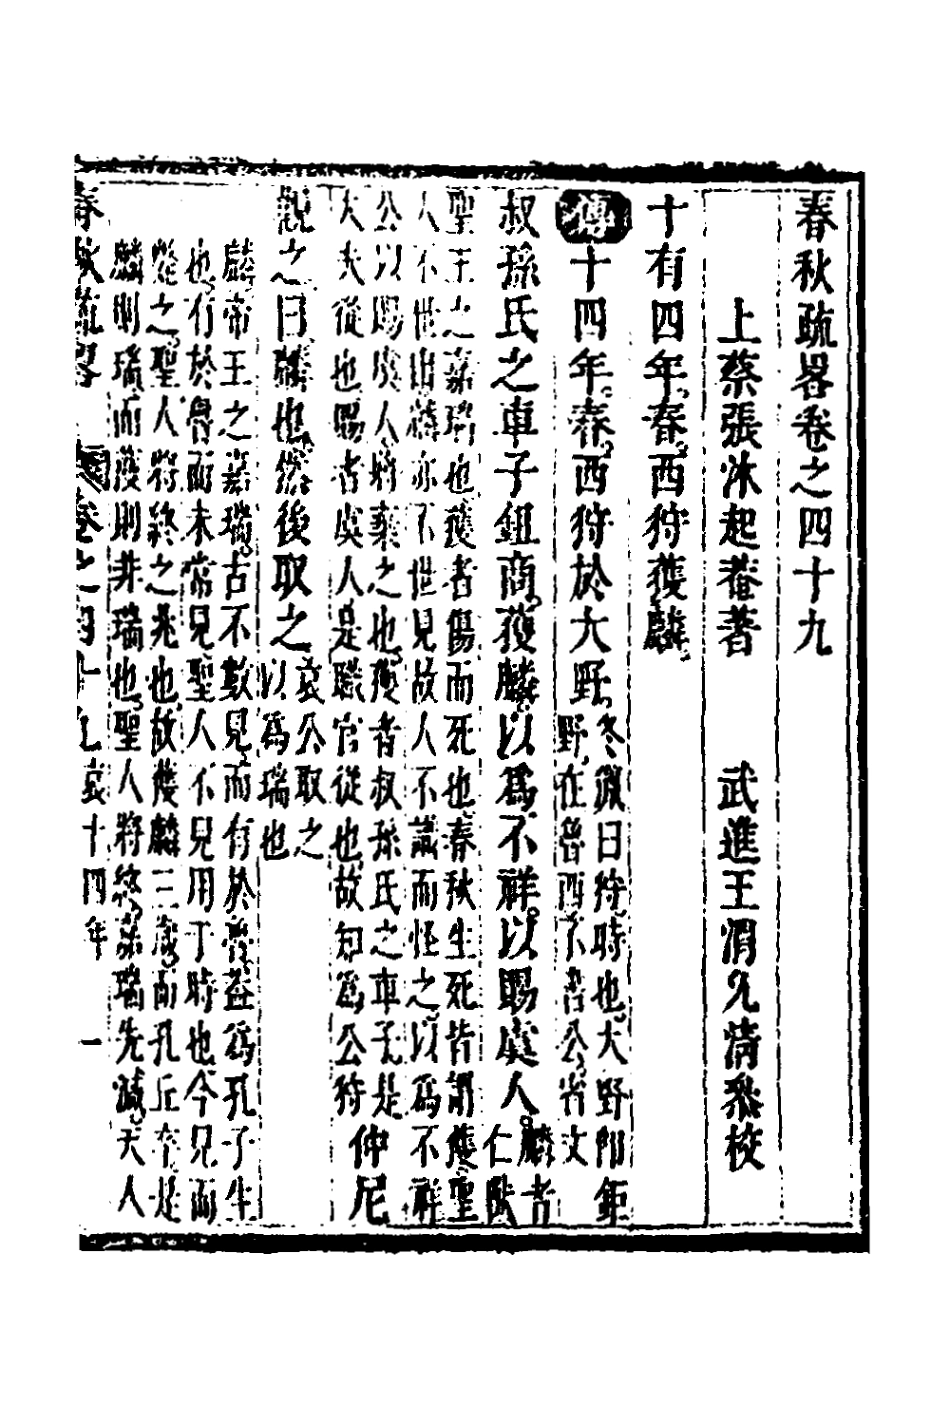 春秋疏畧卷之四十九
上蔡張沐起菴著　武進王渭允清叅校
十有四年春西狩獲麟
傳十四年春西狩於大野冬獵曰狩時也大野卽鉅
野在魯西不書公省文
叔孫氏之車子鉏商獲麟以爲不祥以賜虞人麟者
仁獸
聖王之嘉瑞也獲者傷而死也春秋生死皆謂獲聖
人不世出麟亦不世見故人不識而怪之以爲不祥
公以賜虞人將棄之也獲者叔孫氏之車子是
大夫從也賜者虞人是職官從也故知爲公狩仲尼
觀之曰麟也然後取之哀公取之
以爲瑞也
麟帝王之嘉瑞古不數見而有於魯葢爲孔子生
也有於魯而未嘗見聖人不見用于時也今見而
斃之聖人將終之兆也故獲麟三歲而孔丘卒是
麟則瑞而獲則非瑞也聖人將終嘉瑞先滅天人
春秋疏畧　卷之四十九哀十四年　一